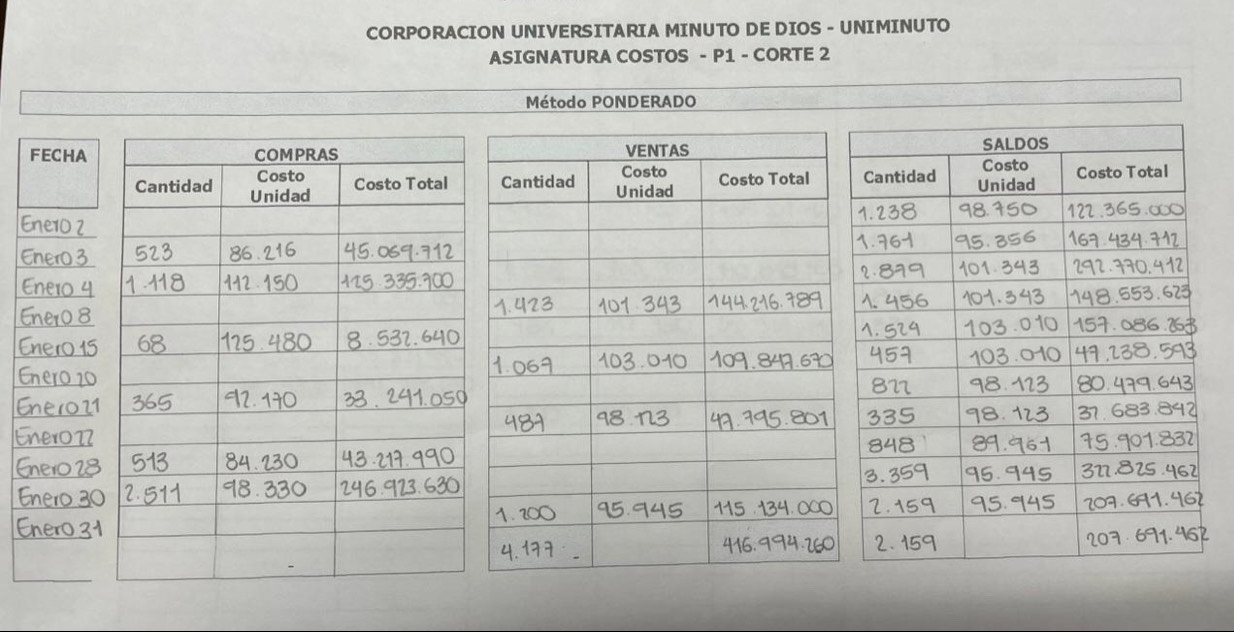 CORPORACION UNIVERSITARIA MINUTO DE DIOS - UNIMINUTO
ASIGNATURA COSTOS - P1 - CORTE 2
Método PONDERADO
FECHA COMPRAS VENTAS SALDOS
Cantidad Costo Unidad Costo Total Cantidad Costo Unidad Costo Total Cantidad Costo Unidad Costo Total
Enero 2 1.238 98.750 122.365.000
Enero 3 523 86.216 45.069.712 1.761 95.356 167.434.712
Enero 4 1.118 112.150 125.335.700 2.879 101.343 292.770.412
Enero 8 1.423 101.343 144.216.789 1.456 101.343 148.553.623
Enero 15 68 125.480 8.532.640 1.524 103.010 157.086.263
Enero 20 1.067 103.010 109.847.670 457 103.010 47.238.593
Enero 21 365 92.170 33.241.050 822 98.123 80.479.643
Enero 22 487 98.123 47.795.801 335 98.123 32.683.842
Enero 28 513 84.230 43.217.990 848 89.961 75.901.832
Enero 30 2.511 98.330 246.923.630 3.359 95.945 322.825.462
Enero 31 1.200 95.945 115.134.000 2.159 95.945 207.691.462
4.177 416.994.260 2.159 207.691.462